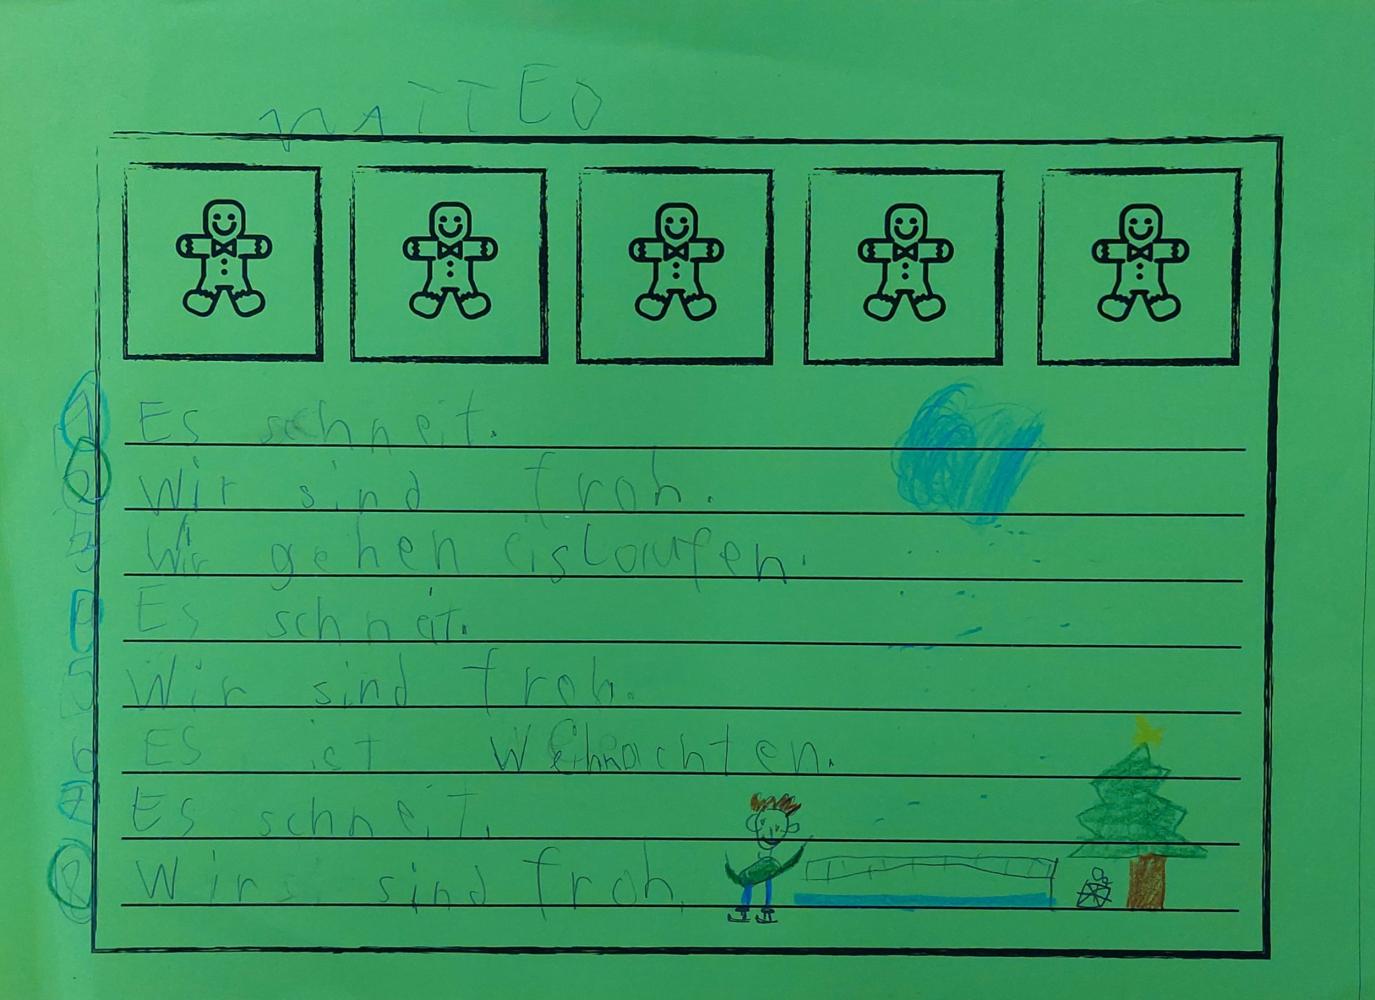 MATTEO
1 Es schneit.
2 Wir sind froh.
3 Wir gehen eislaufen.
4 Es schneit.
5 Wir sind froh.
6 ES ist Weihnachten.
7 Es schneit.
8 Wir sind froh.